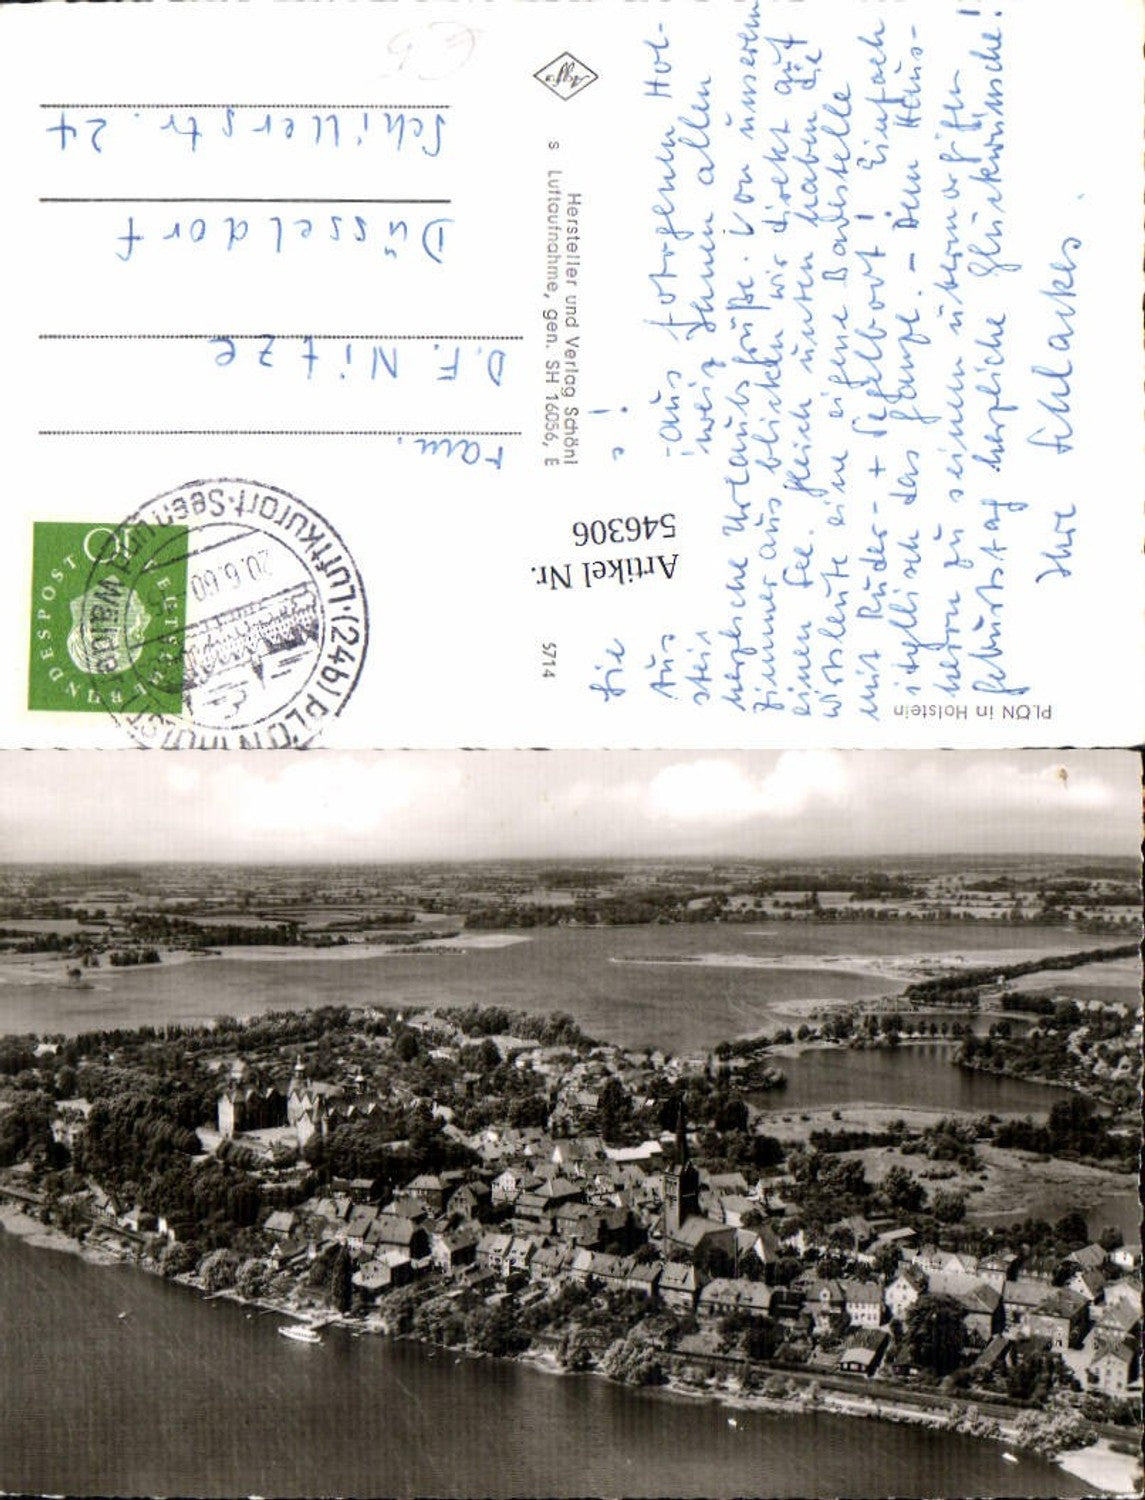 PLÖN in Holstein
5714
Artikel Nr.
546306
Hersteller und Verlag Schöni
Luftaufnahme, gen. SH 16056, E
s
Agfa
Aus
-aus sorgenu Hol-
stein
weiz Ihnen allen
herzliche Urlaubsgrüße. Von unserem
Zimmer aus blicken wir direkt auf
einen See. Gleich unten haben die
Wirtsleute eine eigene Badestelle
mit Ruder- + Segelboot! Einfach
idyllisch das Ganze. - Dem Haus-
herrn zu seinem übermorgigen
Geburtstag herzliche Glückwünsche!
Ihre Schlackes.
(24b) PLÖN (HOLST)
Luftkurort · Seen und Wälder
20.6.60
DEUTSCHE
BUNDESPOST
Fam.
D.F. Nitze
Düsseldorf
Schillerstr. 24